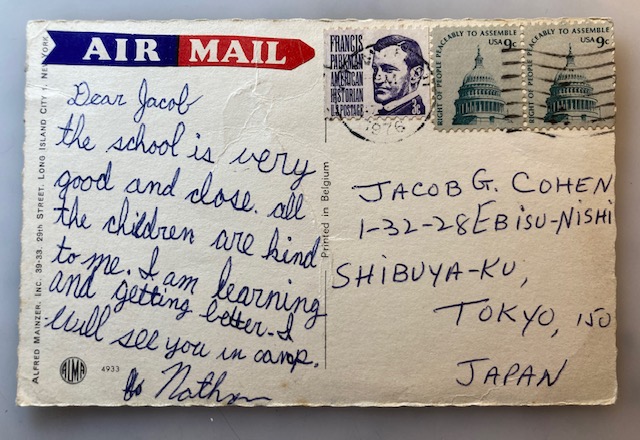 AIR MAIL
Dear Jacob
the school is very
good and close. all
the children are kind
to me. I am learning
and getting better. I
will see you in camp.
Nathan
FRANCIS
PARKMAN
AMERICAN
HISTORIAN
U.S. POSTAGE
3c
1976
RIGHT OF PEOPLE PEACEABLY TO ASSEMBLE
USA 9c
RIGHT OF PEOPLE PEACEABLY TO ASSEMBLE
USA 9c
JACOB G. COHEN
1-32-28 EBISU-NISHI
SHIBUYA-KU,
TOKYO, 150
JAPAN
Printed in Belgium
ALFRED MAINZER, INC. 39-33, 29th STREET, LONG ISLAND CITY 1, NEW YORK
ALMA
4933